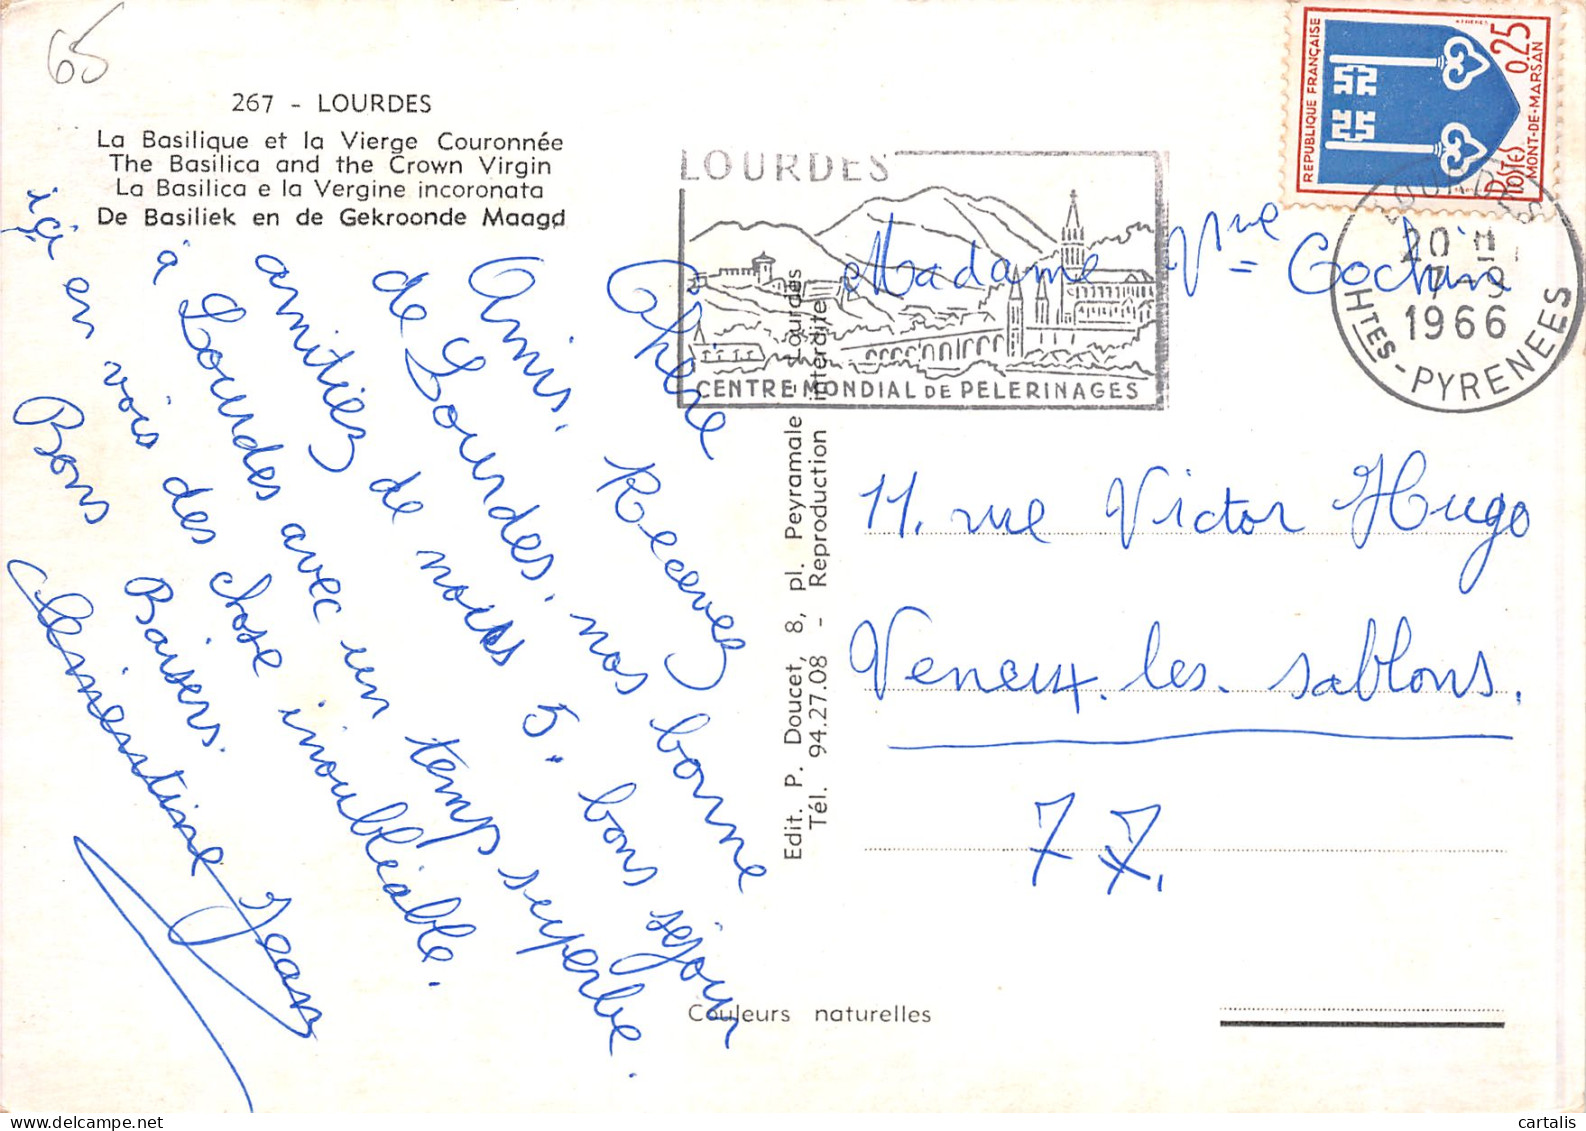 65
267 - LOURDES
La Basilique et la Vierge Couronnée
The Basilica and the Crown Virgin
La Basilica e la Vergine incoronata
De Basiliek en de Gekroonde Maagd
Chère
Amis. Recevez
de Lourdes. nos bonne
amitiez de nous 5. bons séjour
à Lourdes avec un temp superbe.
içi en vois des chose inoubléable.
Bons Baisers.
Clémentine Jean
Edit. P. Doucet, 8, pl. Peyramale - Lourdes
Tél. 94.27.08 - Reproduction interdite
Couleurs naturelles
LOURDES
CENTRE MONDIAL DE PELERINAGES
REPUBLIQUE FRANÇAISE
0,25
POSTES
MONT-DE-MARSAN
LOURDES
20 H
7-9
1966
HTES-PYRENEES
Madame Vve Cochin
11. rue Victor Hugo
Veneux. les. sablons.
77.
cartalis